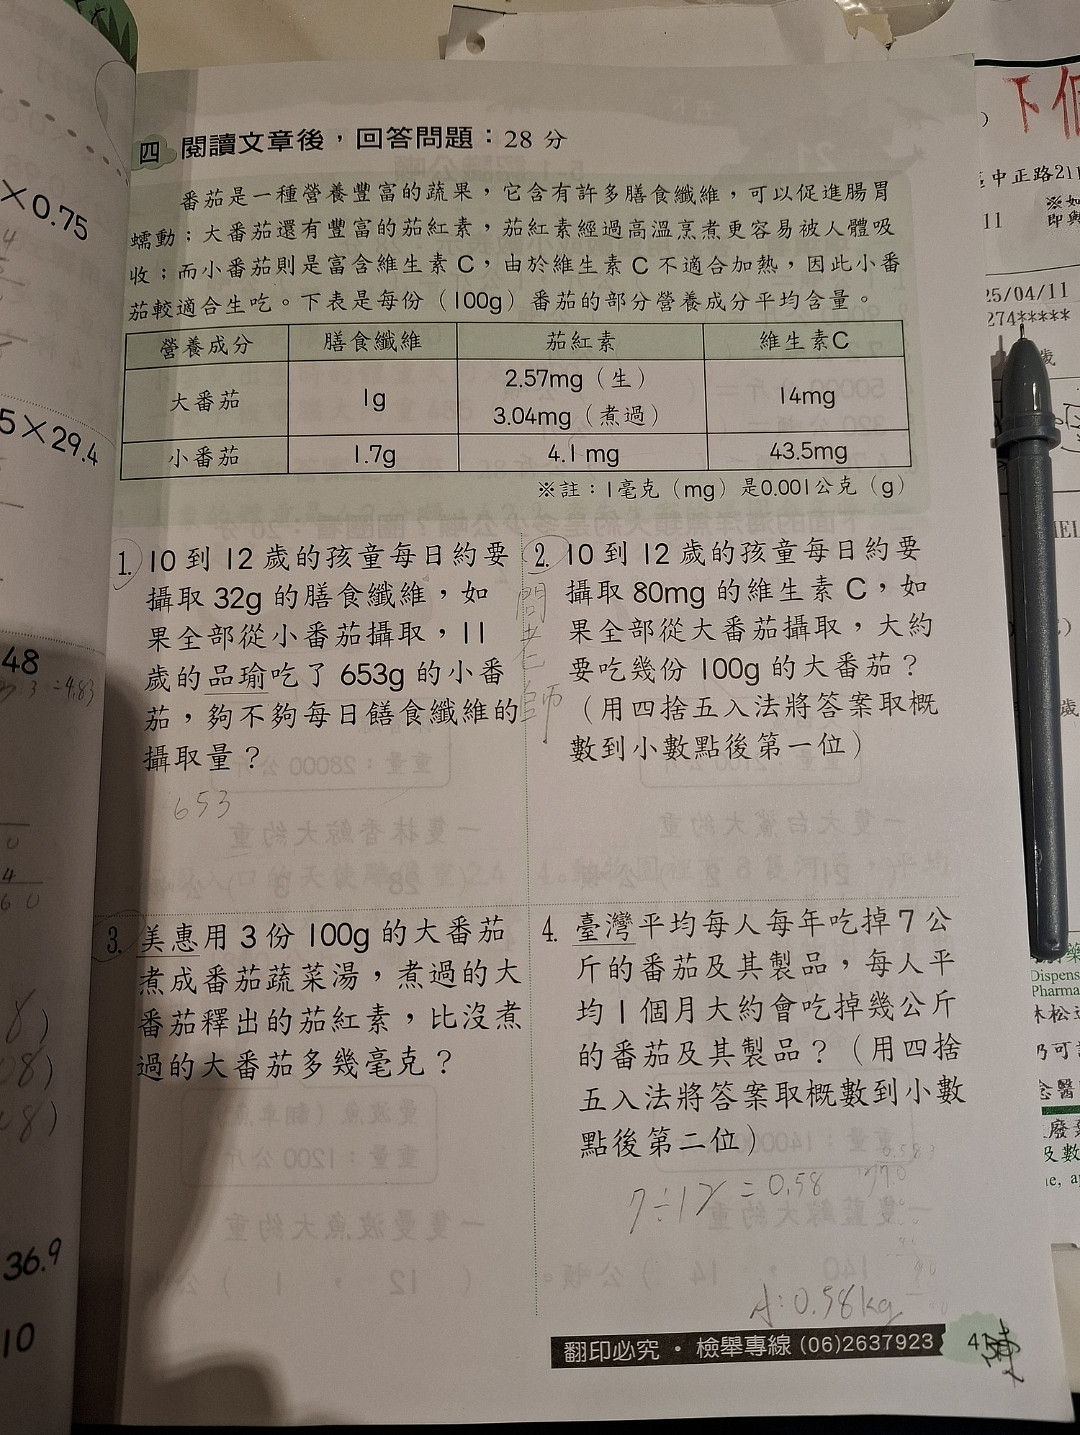 四 閱讀文章後，回答問題：28 分
番茄是一種營養豐富的蔬果，它含有許多膳食纖維，可以促進腸胃
蠕動；大番茄還有豐富的茄紅素，茄紅素經過高溫烹煮更容易被人體吸
收；而小番茄則是富含維生素C，由於維生素C不適合加熱，因此小番
茄較適合生吃。下表是每份（100g）番茄的部分營養成分平均含量。
營養成分 膳食纖維 茄紅素 維生素C
大番茄 1g 2.57mg（生） 14mg
3.04mg（煮過）
小番茄 1.7g 4.1mg 43.5mg
※註：1毫克（mg）是0.001公克（g）
1. 10到12歲的孩童每日約要
攝取32g的膳食纖維，如
果全部從小番茄攝取，11
歲的品瑜吃了653g的小番
茄，夠不夠每日饍食纖維的
攝取量？
653
問老師
2. 10到12歲的孩童每日約要
攝取80mg的維生素C，如
果全部從大番茄攝取，大約
要吃幾份100g的大番茄？
（用四捨五入法將答案取概
數到小數點後第一位）
3. 美惠用3份100g的大番茄
煮成番茄蔬菜湯，煮過的大
番茄釋出的茄紅素，比沒煮
過的大番茄多幾毫克？
4. 臺灣平均每人每年吃掉7公
斤的番茄及其製品，每人平
均1個月大約會吃掉幾公斤
的番茄及其製品？（用四捨
五入法將答案取概數到小數
點後第二位）
7÷12=0.58
A:0.58kg
翻印必究・檢舉專線 (06)2637923
×0.75
5×29.4
48
36.9
10
下個
中正路21
11
25/04/11
274*****
歲
Dispens
Pharma